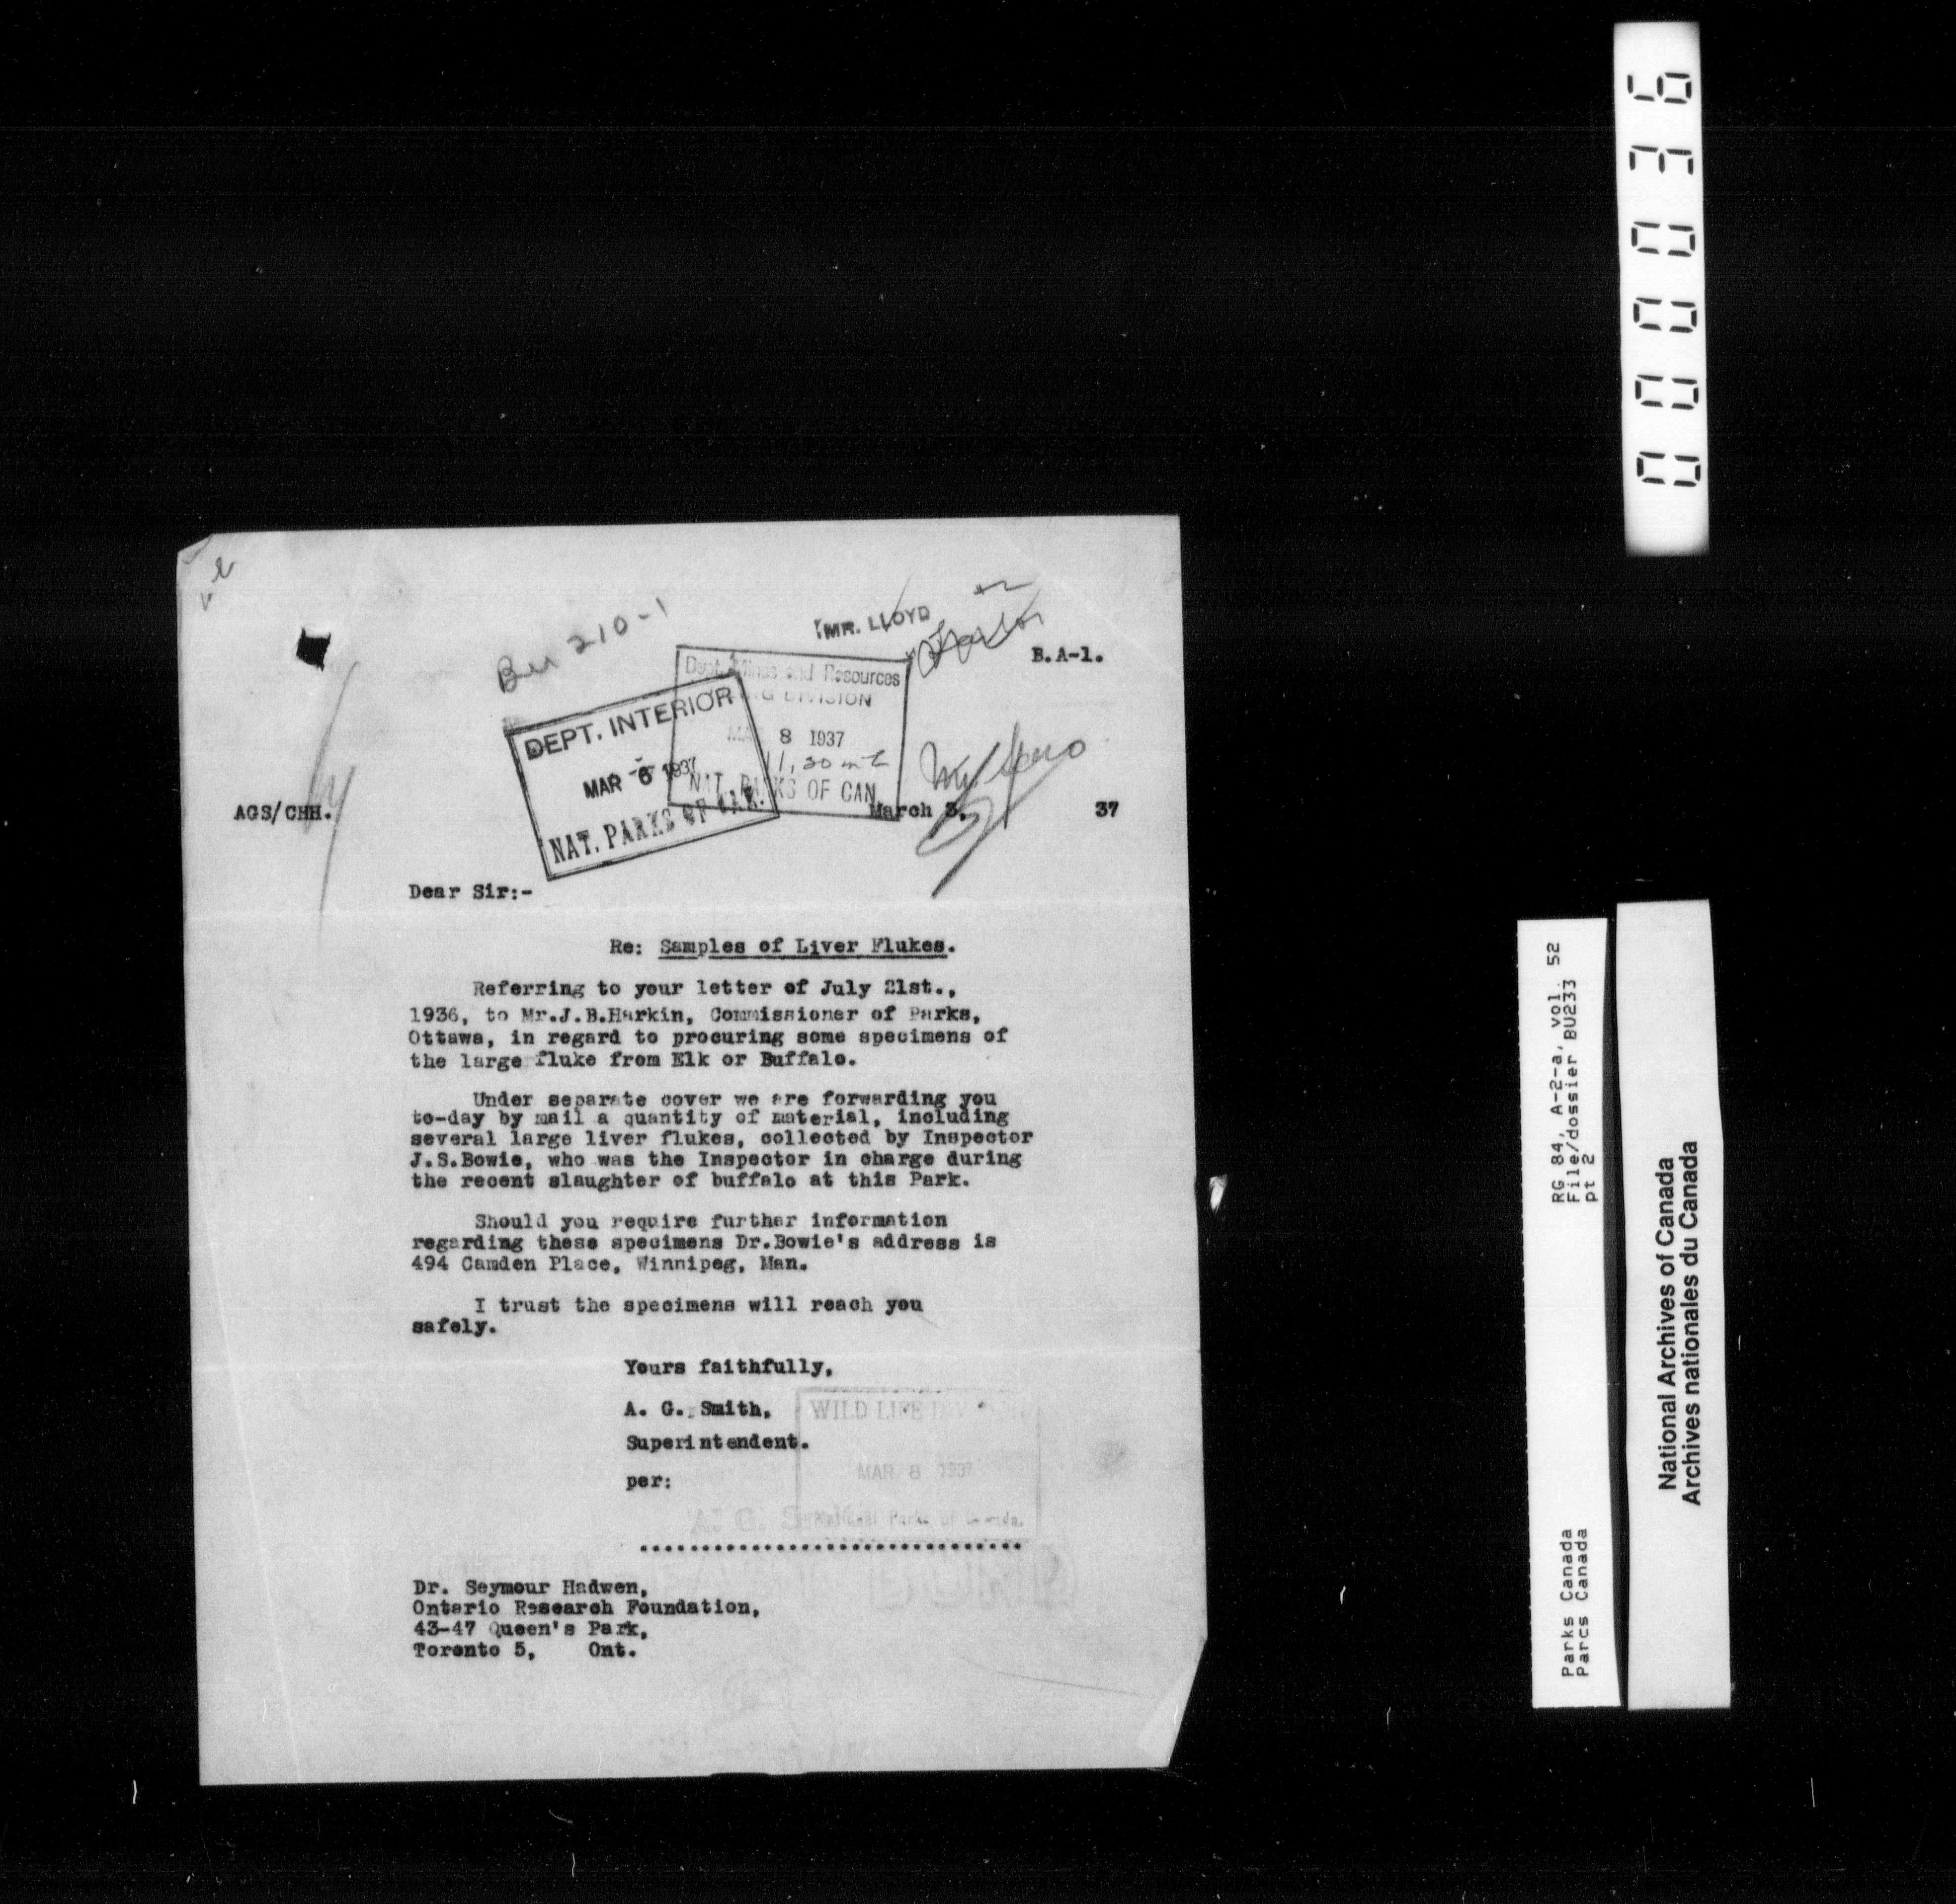 000036
Bu 210-1
MR. LLOYD
B.A-1.
Dept. Mines and Resources
DIVISION
8 1937
11,30
NAT. PARKS OF CAN
DEPT. INTERIOR
MAR 6 1937
NAT. PARKS OF CAN.
AGS/CHH.
March 3, 37
Dear Sir:-
Re: Samples of Liver Flukes.
Referring to your letter of July 21st.,
1936, to Mr.J.B.Harkin, Commissioner of Parks,
Ottawa, in regard to procuring some specimens of
the large fluke from Elk or Buffalo.
Under separate cover we are forwarding you
to-day by mail a quantity of material, including
several large liver flukes, collected by Inspector
J.S.Bowie, who was the Inspector in charge during
the recent slaughter of buffalo at this Park.
Should you require further information
regarding these specimens Dr.Bowie's address is
494 Camden Place, Winnipeg, Man.
I trust the specimens will reach you
safely.
Yours faithfully,
A. G. Smith,
Superintendent.
per:
WILD LIFE DIVISION
MAR 8 1937
National Parks of Canada.
Dr. Seymour Hadwen,
Ontario Research Foundation,
43-47 Queen's Park,
Toronto 5, Ont.
RG 84, A-2-a, vol. 52
File/dossier BU233
pt 2
Parks Canada
Parcs Canada
National Archives of Canada
Archives nationales du Canada